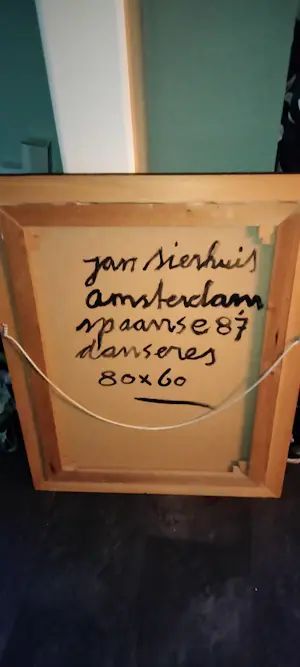 jan sierhuis
amsterdam
spaanse 87
danseres
80x60